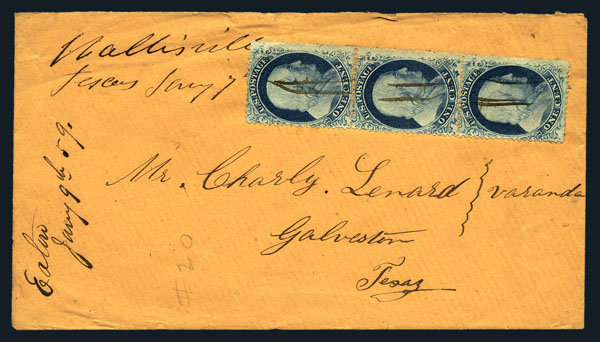 Wallisvill
Texas Jany 7
U.S. POSTAGE
ONE CENT
U.S. POSTAGE
ONE CENT
U.S. POSTAGE
ONE CENT
Mr. Charly. Lenard } varanda
Galveston
Texas
Jany 9th 59.
#20